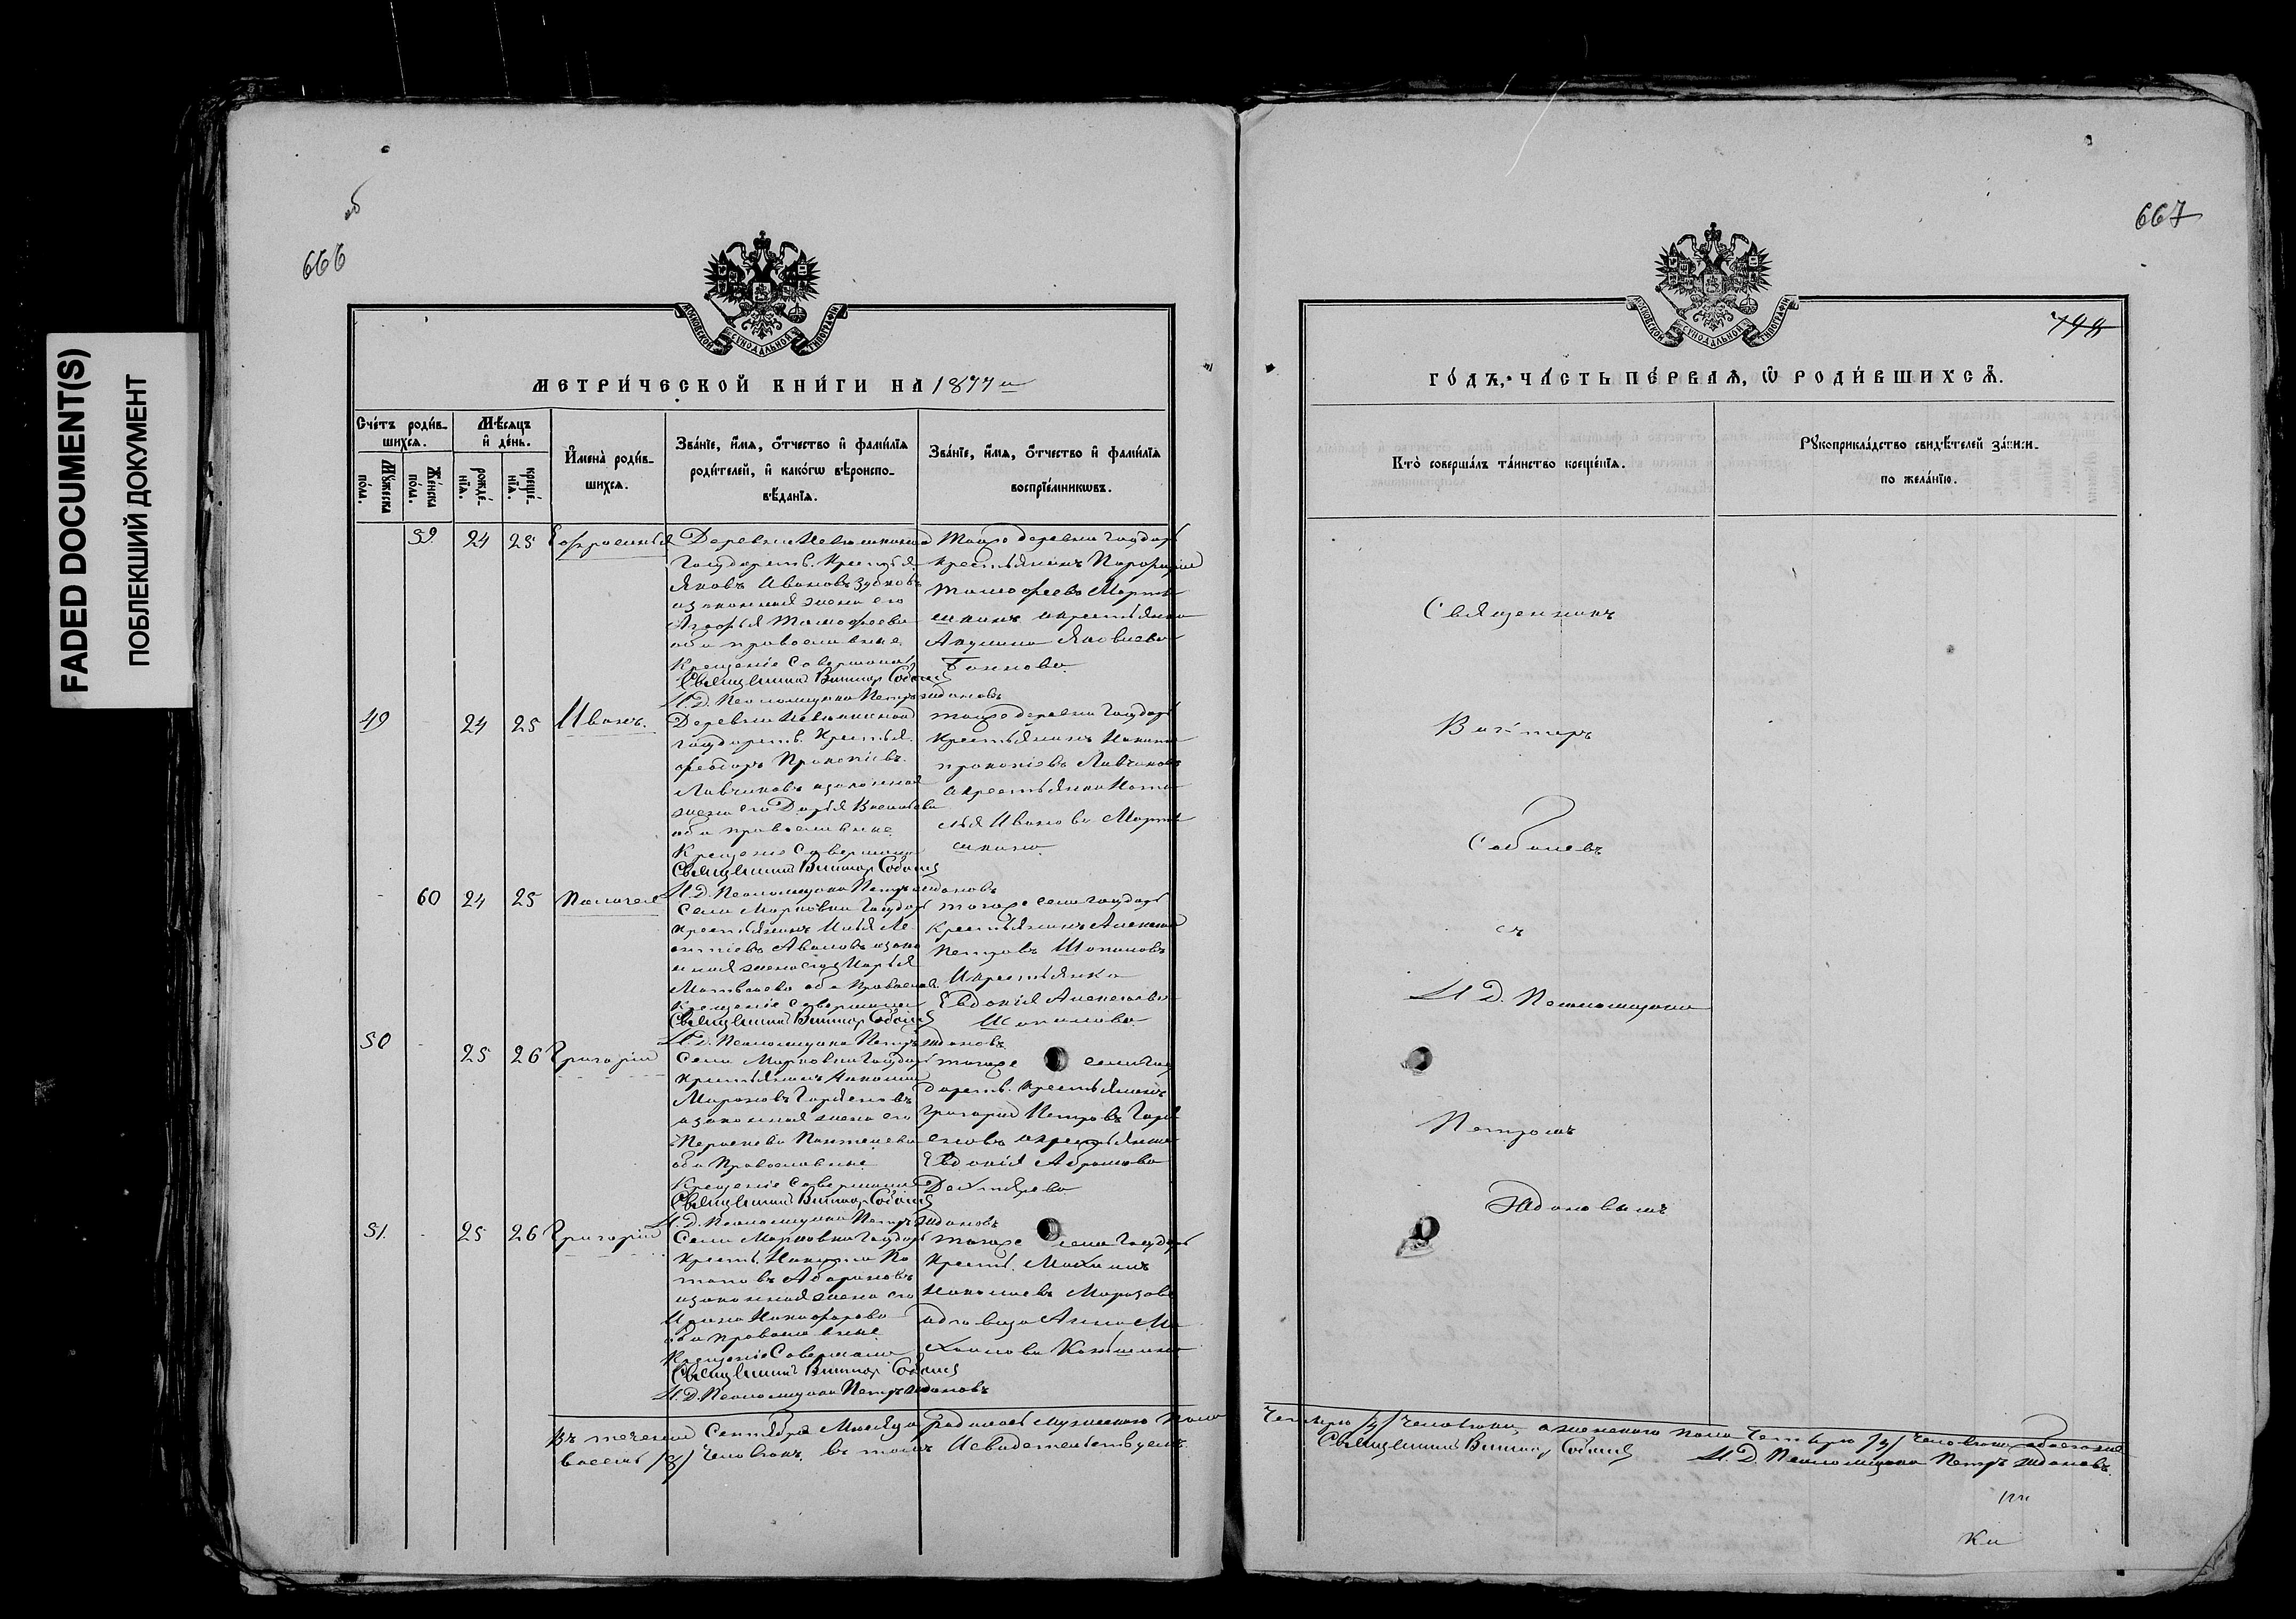 FADED DOCUMENT(S)
ПОБЛЕКШИЙ ДОКУМЕНТ
об
666
667
МОСКОВСКОЙ СѴНОДАЛЬНОЙ ТИПОГРАФІИ
МЕТРИ́ЧЕСКОЙ КНИ́ГИ НА 1877 й
Сче́тъ роди́в-
шихся.
Мѣ́сяцъ
и҆ де́нь.
Мꙋ́жеска
по́ла.
Же́нска
по́ла.
рожде́-
нїѧ.
креще́-
нїѧ.
И҆мена̀ роди́в-
шихсѧ.
Зва́нїе, и҆́мѧ, ѻ҆́тчество и҆ фами́лїѧ
роди́телей, и҆ како́гѡ вѣроиспо-
вѣ́данїѧ.
Зва́нїе, и҆́мѧ, ѻ҆́тчество и҆ фами́лїѧ
воспрїе́мникѡвъ.
59 24 25
Деревни
Государств. Крестья
Яковъ Ивановъ Зубковъ
изаконная жена его
Тимофеева
оба православные
Крещеніе Совершали
Священникъ Викторъ Соболевъ
И.Д. Псаломщика Петръ Ждановъ
Тойже деревни Государ
крестьянинъ Порфирій
Тимофеевъ Март
икрестьянка
Акулина Яковлева
49 24 25 Иванъ.
Деревни
Государств. Крестья
Ѳеодоръ Прокопіевъ
Лавчиковъ изаконная
жена его Дарья Васильева
оба православные
Крещеніе Совершали
Священникъ Викторъ Соболевъ
И.Д. Псаломщика Петръ Ждановъ
Тойже деревни Государ
Крестьянинъ Никита
Прокопіевъ Лавчиковъ
икрестьянка Ната
лья Иванова Март
60 24 25 Пелагея
Села Марковки Государ
крестьянинъ Илья Ле
онтіевъ Аваловъ изако
нная жена его Марья
Матвеева оба Православ.
Крещеніе Совершали
Священникъ Викторъ Соболевъ
И.Д. Псаломщика Петръ Ждановъ
тогоже села Государ
Крестьянинъ Алексей
Петровъ Шопиловъ
Икрестьянка
Евдокія Алексеева
Шопилова
50 25 26 Григорій
Села Марковки Государ
Крестьянинъ
Мироновъ Горяеновъ
изаконная жена его
Пантелеева
оба Православные
Крещеніе Совершали
Священникъ Викторъ Соболевъ
И.Д. Псаломщика Петръ Ждановъ
тогоже села Госу
дарств. Крестьянинъ
Григорій Петровъ Горя
еновъ икрестьянка
Евдокія Абрамова
Дехтярева
51. 25 26 Григорій
Села Марковки Государ
Крестья. Никита По
таповъ Аборинъ
изаконная жена его
Ирина Никифорова
оба православные
Крещеніе Совершали
Священникъ Викторъ Соболевъ
И.Д. Псаломщика Петръ Ждановъ
тогоже села Государ
Крестья. Михаилъ
Николаевъ Морозовъ
Анна Ми
хаилова
Въ теченіи Сентября Месяца родилось мужескаго пола
восемь /8/ Человекъ. въ томъ Исвидетельствуемъ.
798
ГО́ДЪ, ЧА́СТЬ ПЕ́РВАѦ, Ѡ҆ РОДИ́ВШИХСѦ.
Кто̀ соверша́лъ та́инство креще́нїѧ.
Рꙋкоприкла́дство свидѣ́телей за́писи
по жела́нїю.
Священникъ
Викторъ
Соболевъ
съ
И.Д. Псаломщика
Петромъ
Ждановымъ
Четыре /4/ Человека, аженскаго пола Четыре /4/ Человека
Священникъ Викторъ Соболевъ
И.Д. Псаломщика Петръ Ждановъ.